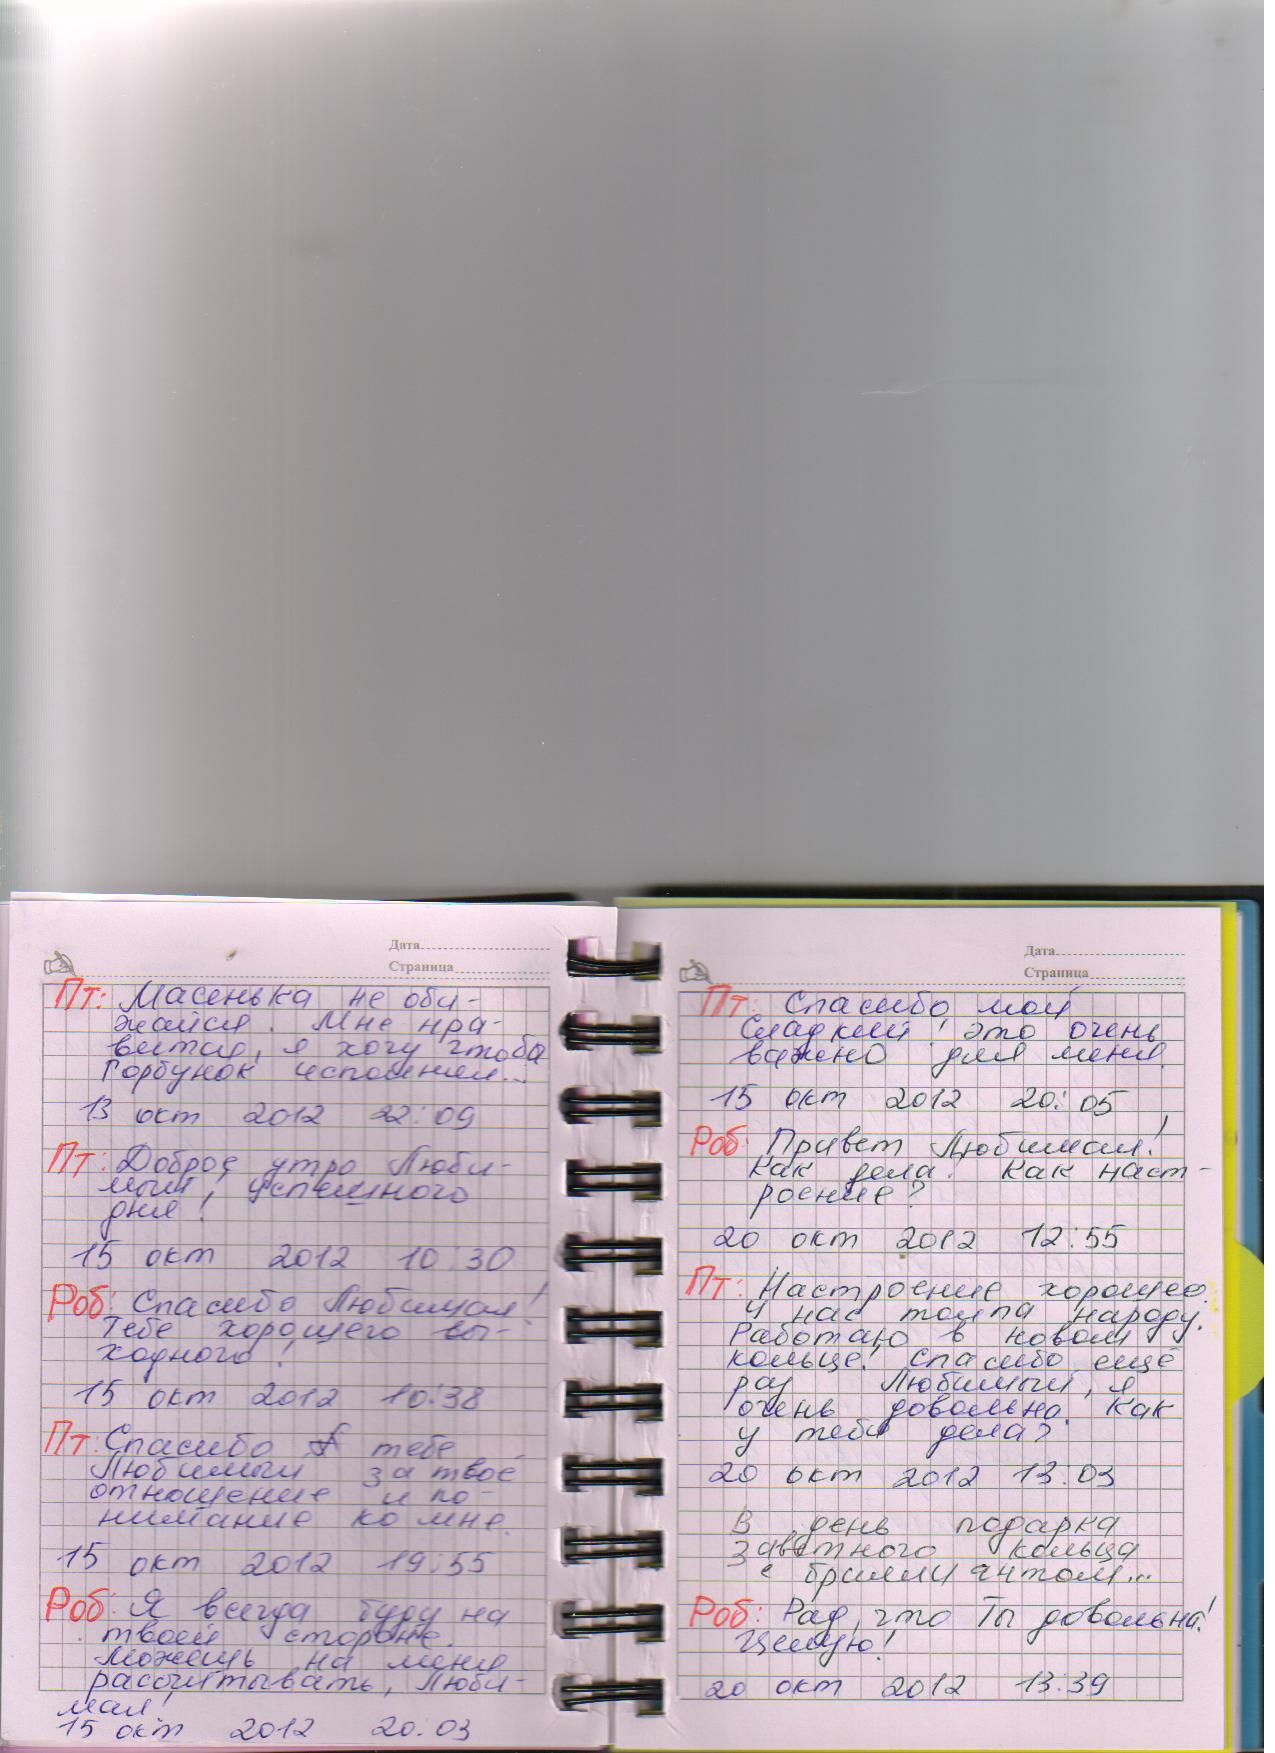 Дата
Страница
Пт: Масенька не оби-
жайся. Мне нра-
вится, я хочу чтоба
Горбунок исполнил...
13 окт 2012 22:09
Пт: Доброе утро Люби-
мый, успешного
дня!
15 окт 2012 10:30
Роб: Спасибо Любимая!
Тебе хорошего вы-
ходного!
15 окт 2012 10:38
Пт: Спасибо тебе
Любимый за твоё
отношение и по-
нимание ко мне.
15 окт 2012 19:55
Роб: Я всегда буду на
твоей стороне.
Можешь на меня
рассчитывать, Люби-
мая!
15 окт 2012 20:03
Дата
Страница
Пт: Спасибо мой
Сладкий! это очень
важно для меня.
15 окт 2012 20:05
Роб: Привет Любимая!
Как дела? Как наст-
роение?
20 окт 2012 12:55
Пт: Настроение хорошее.
У нас толпа народу.
Работаю в новом
кольце! Спасибо ещё
раз Любимый, я
очень довольна. Как
у тебя дела?
20 окт 2012 13:03
В день подарка
заветного кольца
с бриллиантом...
Роб: Рад, что Ты довольна!
Целую!
20 окт 2012 13:39